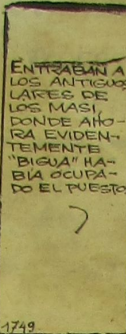 ENTRABAN A
LOS ANTIGUOS
LARES DE
LOS MASI,
DONDE AHO-
RA EVIDEN-
TEMENTE
"BIGUA" HA-
BÍA OCUPA-
DO EL PUESTO
1749